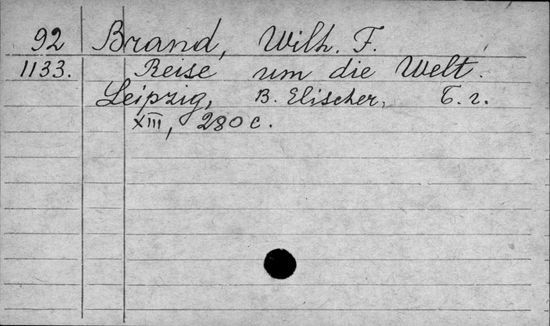 92 Brand, Wilh. F.
1133. Reise um die Welt.
Leipzig, B. Elischer, Б. г.
XIII, 280 с.